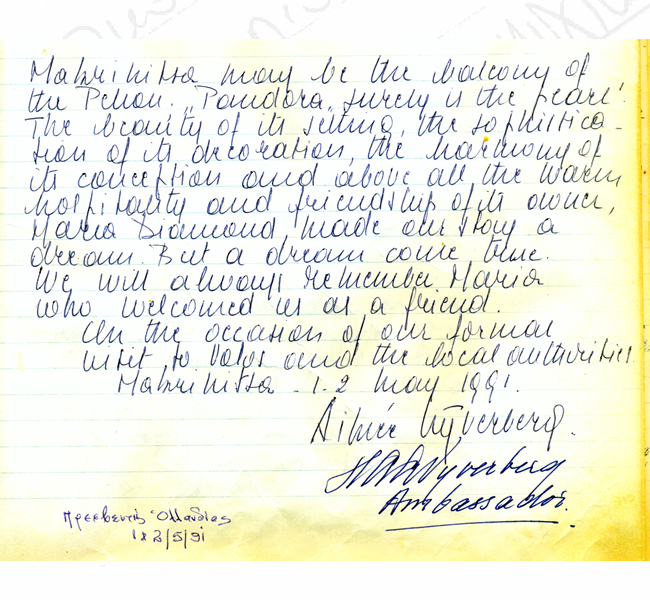 Makrinitsa may be the balcony of
the Pelion. "Pandora" surely is the pearl!
The beauty of its setting, the sophistica-
tion of its decoration, the harmony of
its conception and above all the warm
hospitality and friendship of its owner,
Maria Diamond, made our stay a
dream. But a dream come true.
We will always remember Maria
who welcomed us as a friend.
On the occasion of our formal
visit to Volos and the local authorities.
Makrinitsa - 1.2 May 1991.
Aimée
Ambassador.
Πρεσβευτής Ολλανδίας
1 & 2/5/91